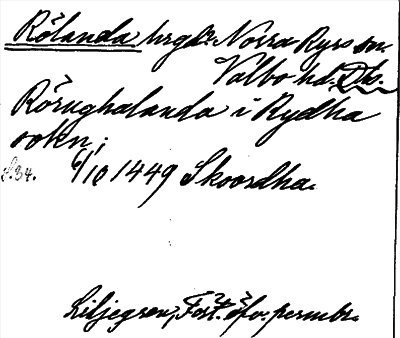 Rölanda hrgd. Norra Ryrs sn.
Valbo hd. Dls.
Rörughalanda i Rydha
sokn;
S.34. 6/10 1449 Skoordha.
Liljegren, Fört. öfv. permbr.